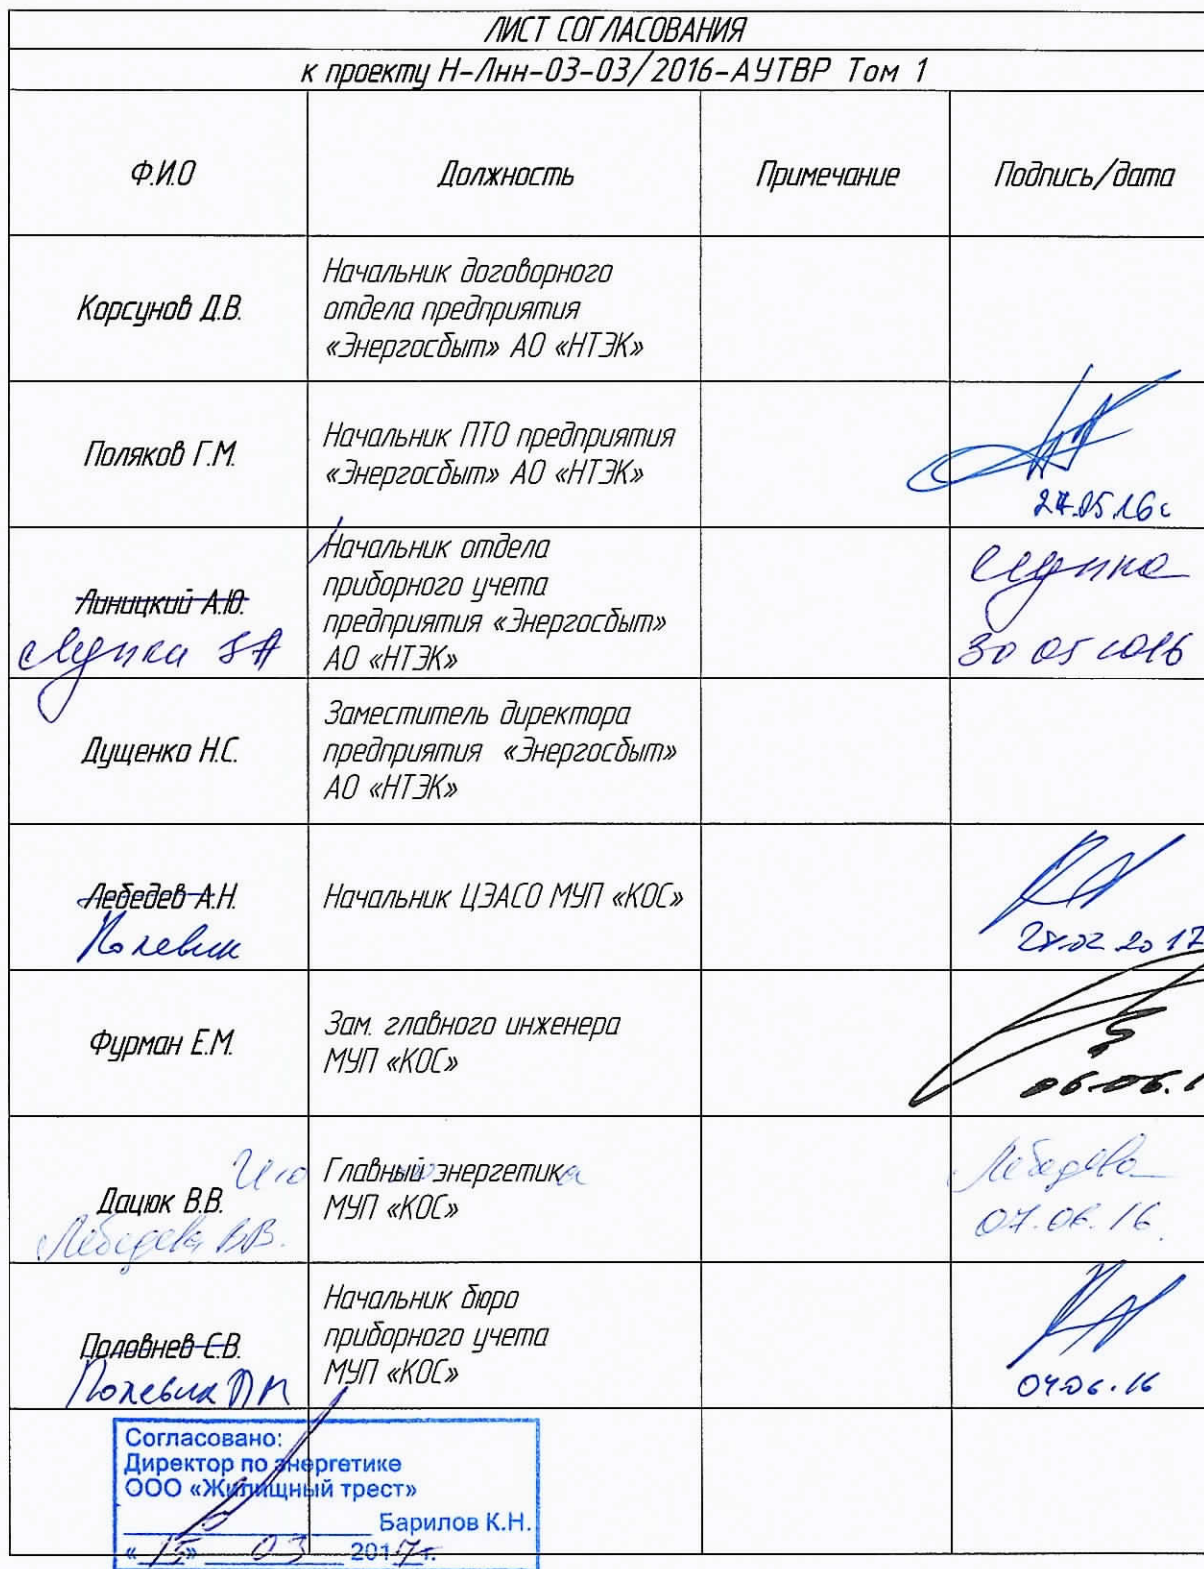 ЛИСТ СОГЛАСОВАНИЯ
к проекту Н-Лнн-03-03/2016-АУТВР Том 1
Ф.И.О
Должность
Примечание
Подпись/дата
Корсунов Д.В.
Начальник договорного
отдела предприятия
«Энергосбыт» АО «НТЭК»
Поляков Г.М.
Начальник ПТО предприятия
«Энергосбыт» АО «НТЭК»
Линицкий А.Ю.
Начальник отдела
приборного учета
предприятия «Энергосбыт»
АО «НТЭК»
30 05 2016
Дущенко Н.С.
Заместитель директора
предприятия «Энергосбыт»
АО «НТЭК»
Лебедев А.Н.
Полевик
Начальник ЦЭАСО МУП «КОС»
02 2017
Фурман Е.М.
Зам. главного инженера
МУП «КОС»
06.06.1
Дацюк В.В.
Лебедева В.В.
И.о Главный энергетика
МУП «КОС»
Лебедева
07.06.16.
Половнев С.В.
Полевик
Начальник бюро
приборного учета
МУП «КОС»
06.16
Согласовано:
Директор по энергетике
ООО «Жилищный трест»
Барилов К.Н.
«15» 03 2017г.